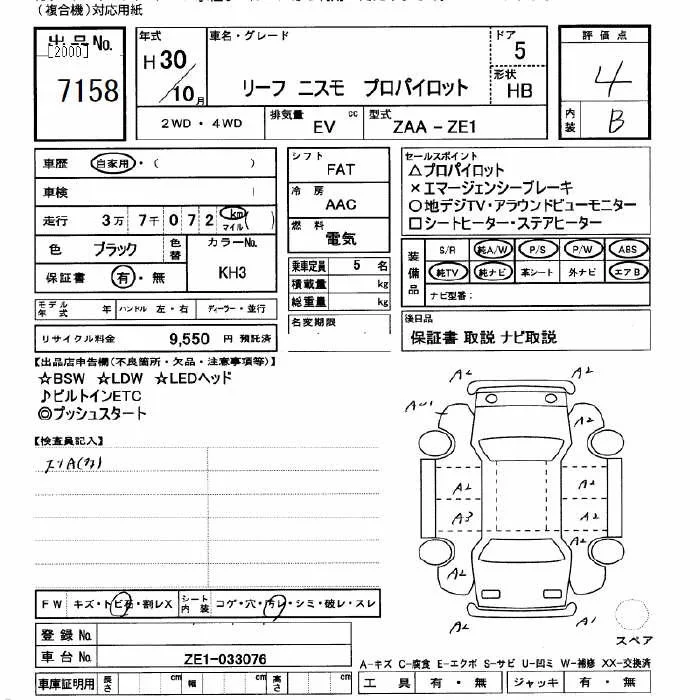 (複合機)対応用紙
出品No.
[2000]
7158
年式
H30
10月
車名・グレード
リーフ ニスモ プロパイロット
ドア
5
形状
HB
評価点
4
内装
B
2WD・4WD
排気量
EV
cc
型式
ZAA-ZE1
車歴 自家用・( )
車検
走行 3万 7千 0 7 2 km マイル ( )
色 ブラック 色替
カラーNo.
KH3
保証書 有・無
シフト
FAT
冷房
AAC
燃料
電気
乗車定員 5 名
積載量 kg
総重量 kg
名変期限
セールスポイント
△プロパイロット
×エマージェンシーブレーキ
○地デジTV・アラウンドビューモニター
□シートヒーター・ステアヒーター
装備品
S/R 純A/W P/S P/W ABS
純TV 純ナビ 革シート 外ナビ エアB
ナビ型番:
モデル年式 年 ハンドル 左・右 ディーラー・並行
リサイクル料金 9,550 円 預託済
後日品
保証書 取説 ナビ取説
【出品店申告欄(不良箇所・欠品・注意事項等)】
☆BSW ☆LDW ☆LEDヘッド
♪ビルトインETC
◎プッシュスタート
【検査員記入】
A2
A2
A2
A2
A2
A2
A3
A2
A2
A2
A2
A2
FW キズ・トビ石・割レX
シート内装 コゲ・穴・汚レ・シミ・破レ・スレ
登録No.
車台No. ZE1-033076
車庫証明用 長さ cm 幅 cm 高さ cm
スペア
A-キズ C-腐食 E-エクボ S-サビ U-凹ミ W-補修 XX-交換済
工具 有・無 ジャッキ 有・無